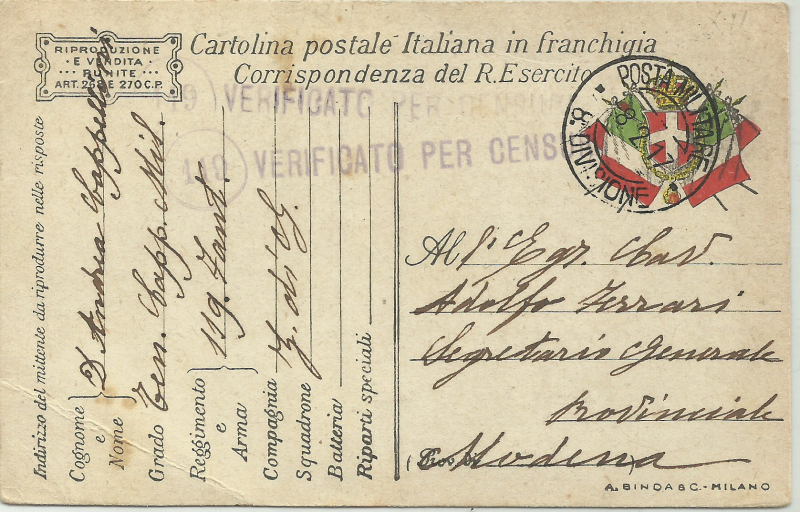 RIPRODUZIONE
E VENDITA
PUNITE
ART. 268 E 270 C.P.
Cartolina postale Italiana in franchigia
Corrispondenza del R. Esercito
VERIFICATO PER CENSURA
119 VERIFICATO PER CENS
POSTA MILITARE
8. DIVISIONE
Indirizzo del mittente da riprodurre nelle risposte
Cognome e Nome D. Andrea Cappellini
Grado Ten. Capp. Mil.
Reggimento e Arma 119. Fant.
Compagnia
Squadrone Z. di G.
Batteria
Riparti speciali
Al l'Egr. Cav.
Adolfo Ferrari
Segretario Generale
Provinciale
Modena
A. BINDA & C. - MILANO